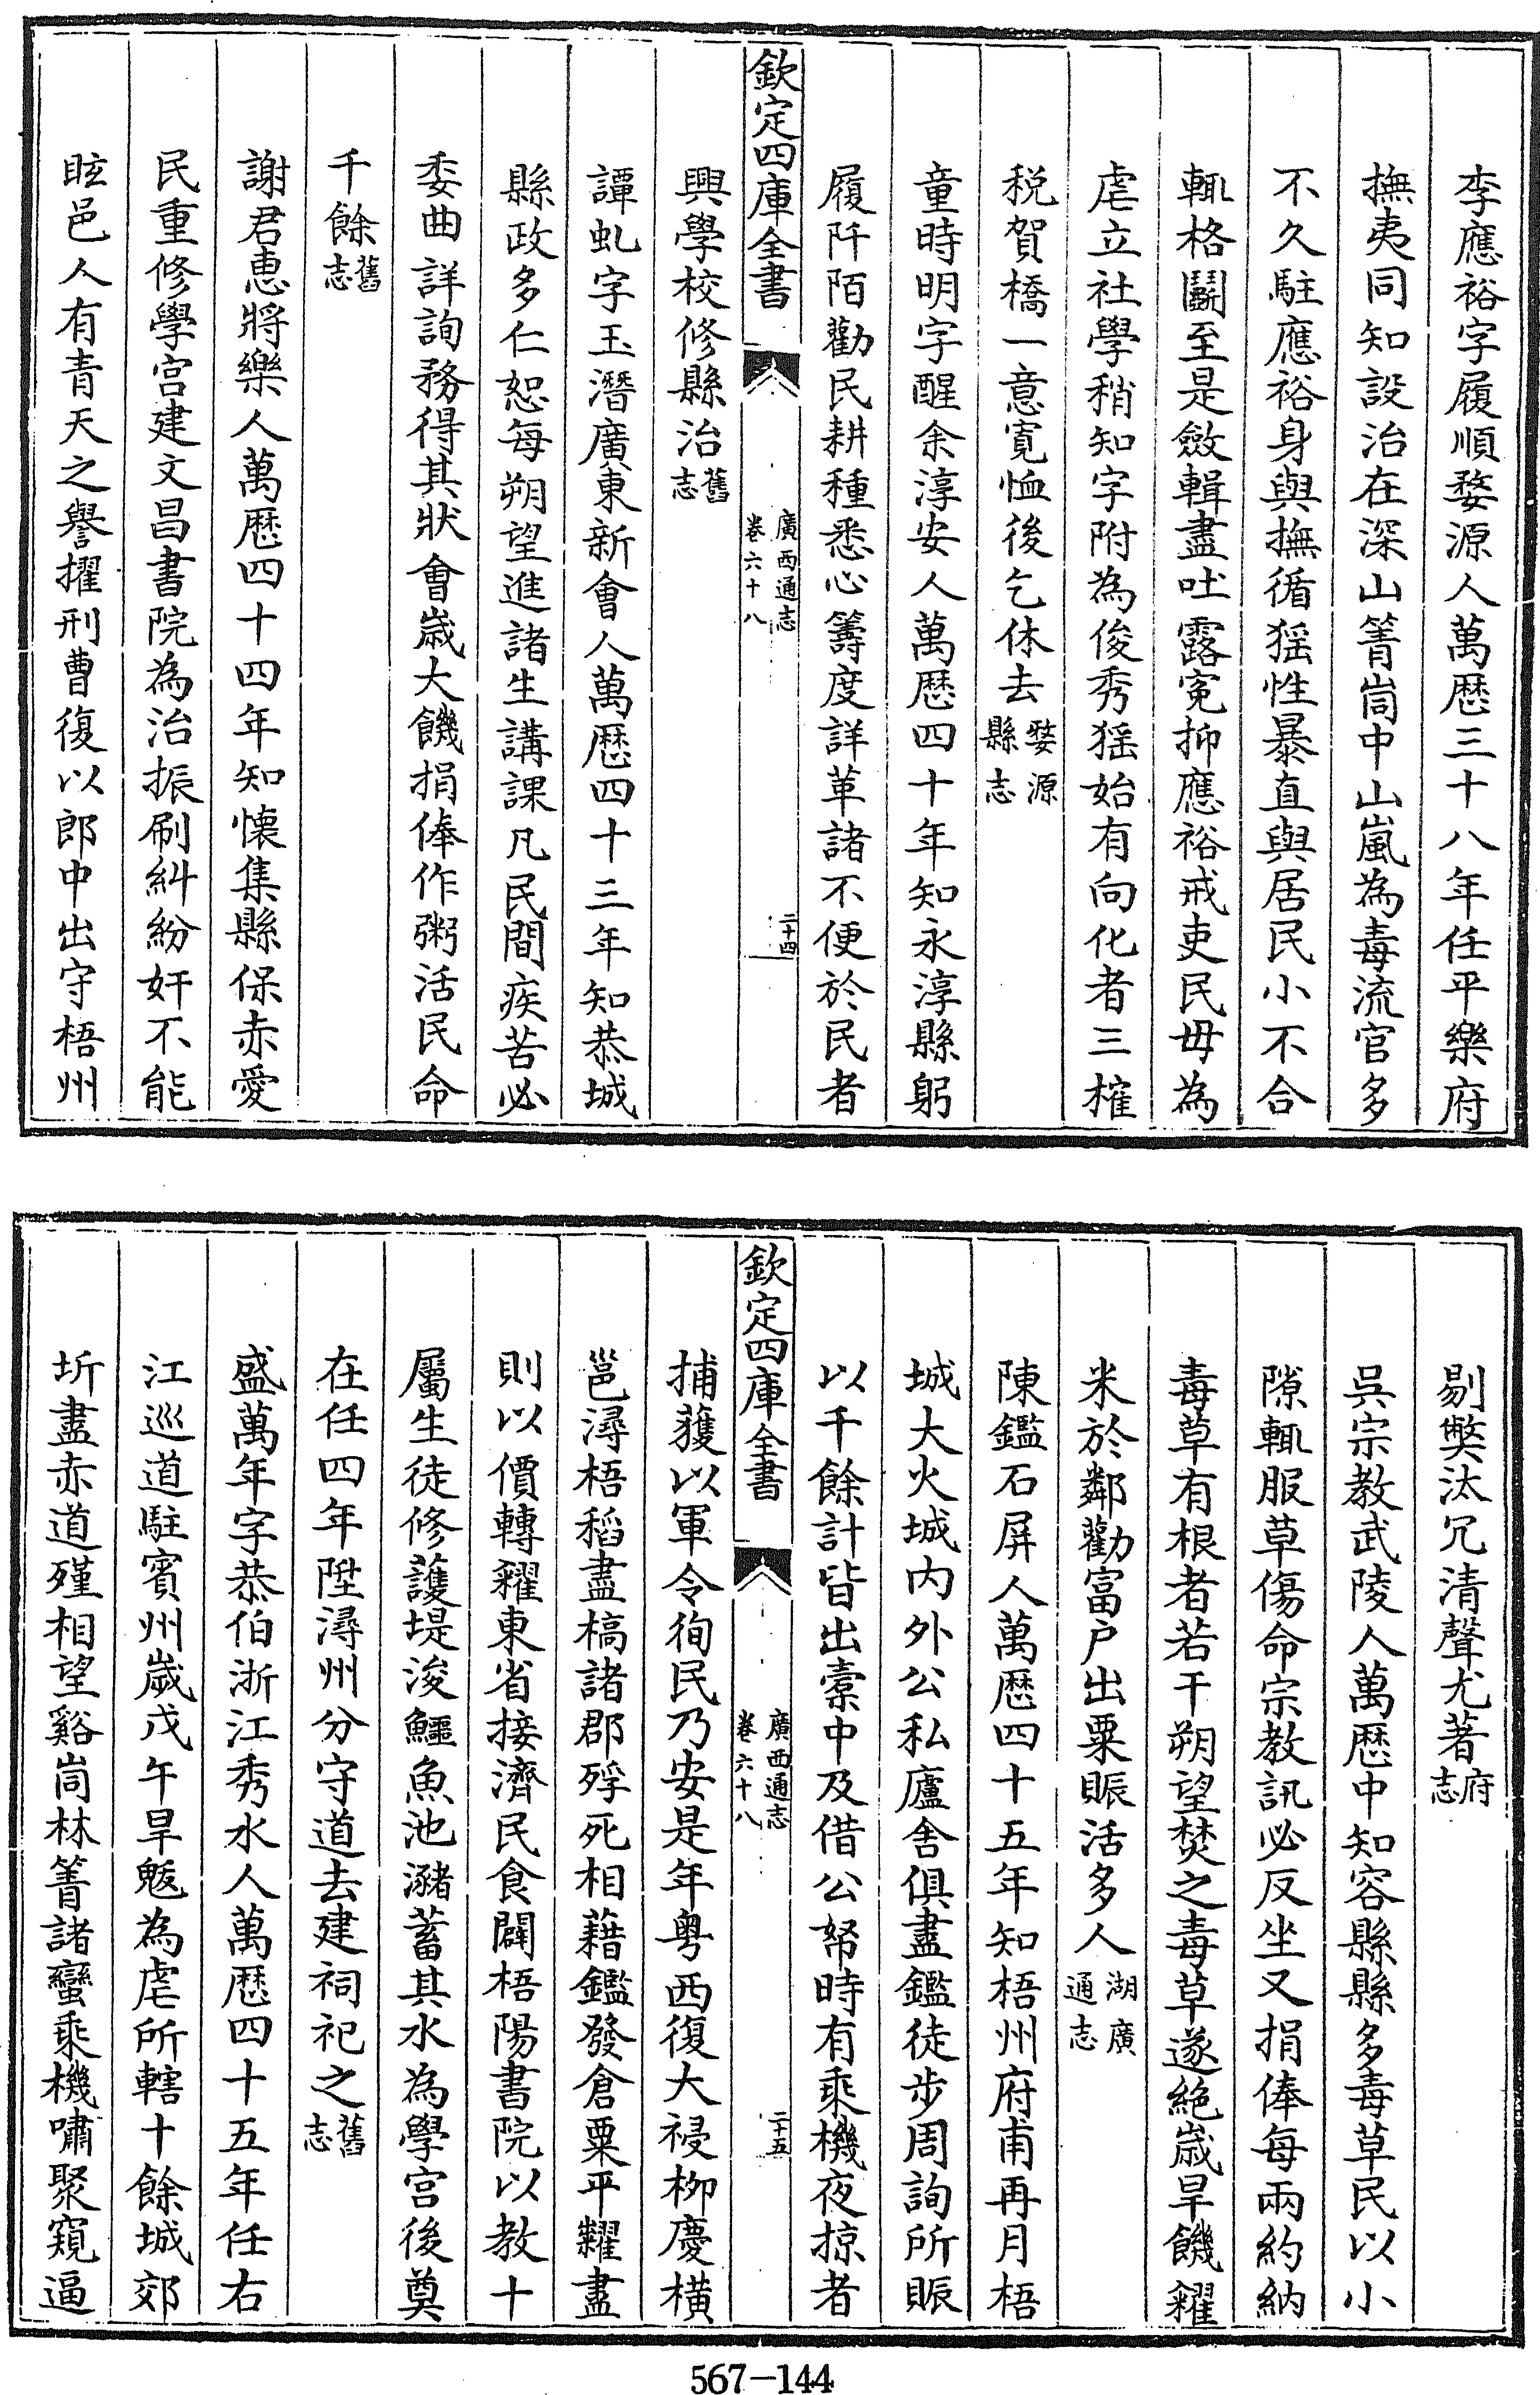 李應裕字履順婺源人萬歴三十八年任平樂府
撫夷同知設治在深山箐峝中山嵐為毒流官多
不久駐應裕身與撫循猺性暴直與居民小不合
輒格鬭至是斂輯盡吐露寃抑應裕戒吏民毋為
虐立社學稍知字附為俊秀猺始有向化者三榷
税賀橋一意寛恤後乞休去婺源縣志
童時明字醒余淳安人萬歴四十年知永淳縣躬
履阡陌勸民耕種悉心籌度詳革諸不便於民者
欽定四庫全書
廣西通志
卷六十八
二十四
興學校修縣治舊志
譚虬字玉潛廣東新會人萬歴四十三年知恭城
縣政多仁恕每朔望進諸生講課凡民間疾苦必
委曲詳詢務得其狀會歲大饑捐俸作粥活民命
千餘舊志
謝君恵將樂人萬歴四十四年知懐集縣保赤愛
民重修學宫建文昌書院為治振刷糾紛奸不能
眩邑人有青天之譽擢刑曹復以郎中出守梧州
剔獘汰冗清聲尤著府志
吳宗教武陵人萬歴中知容縣縣多毒草民以小
隙輒服草傷命宗教訊必反坐又捐俸每兩約納
毒草有根者若干朔望焚之毒草遂絶歲旱饑糴
米於鄰勸富户出粟賑活多人湖廣通志
陳鑑石屏人萬歴四十五年知梧州府甫再月梧
城大火城内外公私廬舍俱盡鑑徒步周詢所賑
以千餘計皆出橐中及借公帑時有乘機夜掠者
欽定四庫全書
廣西通志
卷六十八
二十五
捕獲以軍令徇民乃安是年粤西復大祲柳慶横
邕潯梧稻盡槁諸郡殍死相藉鑑發倉粟平糶盡
則以價轉糴東省接濟民食闢梧陽書院以教十
屬生徒修護堤浚鱷魚池瀦蓄其水為學宫後奠
在任四年陞潯州分守道去建祠祀之舊志
盛萬年字恭伯浙江秀水人萬歴四十五年任右
江巡道駐賓州歲戊午旱魃為虐所轄十餘城郊
圻盡赤道殣相望谿峝林箐諸蠻乘機嘯聚窺逼
567-144